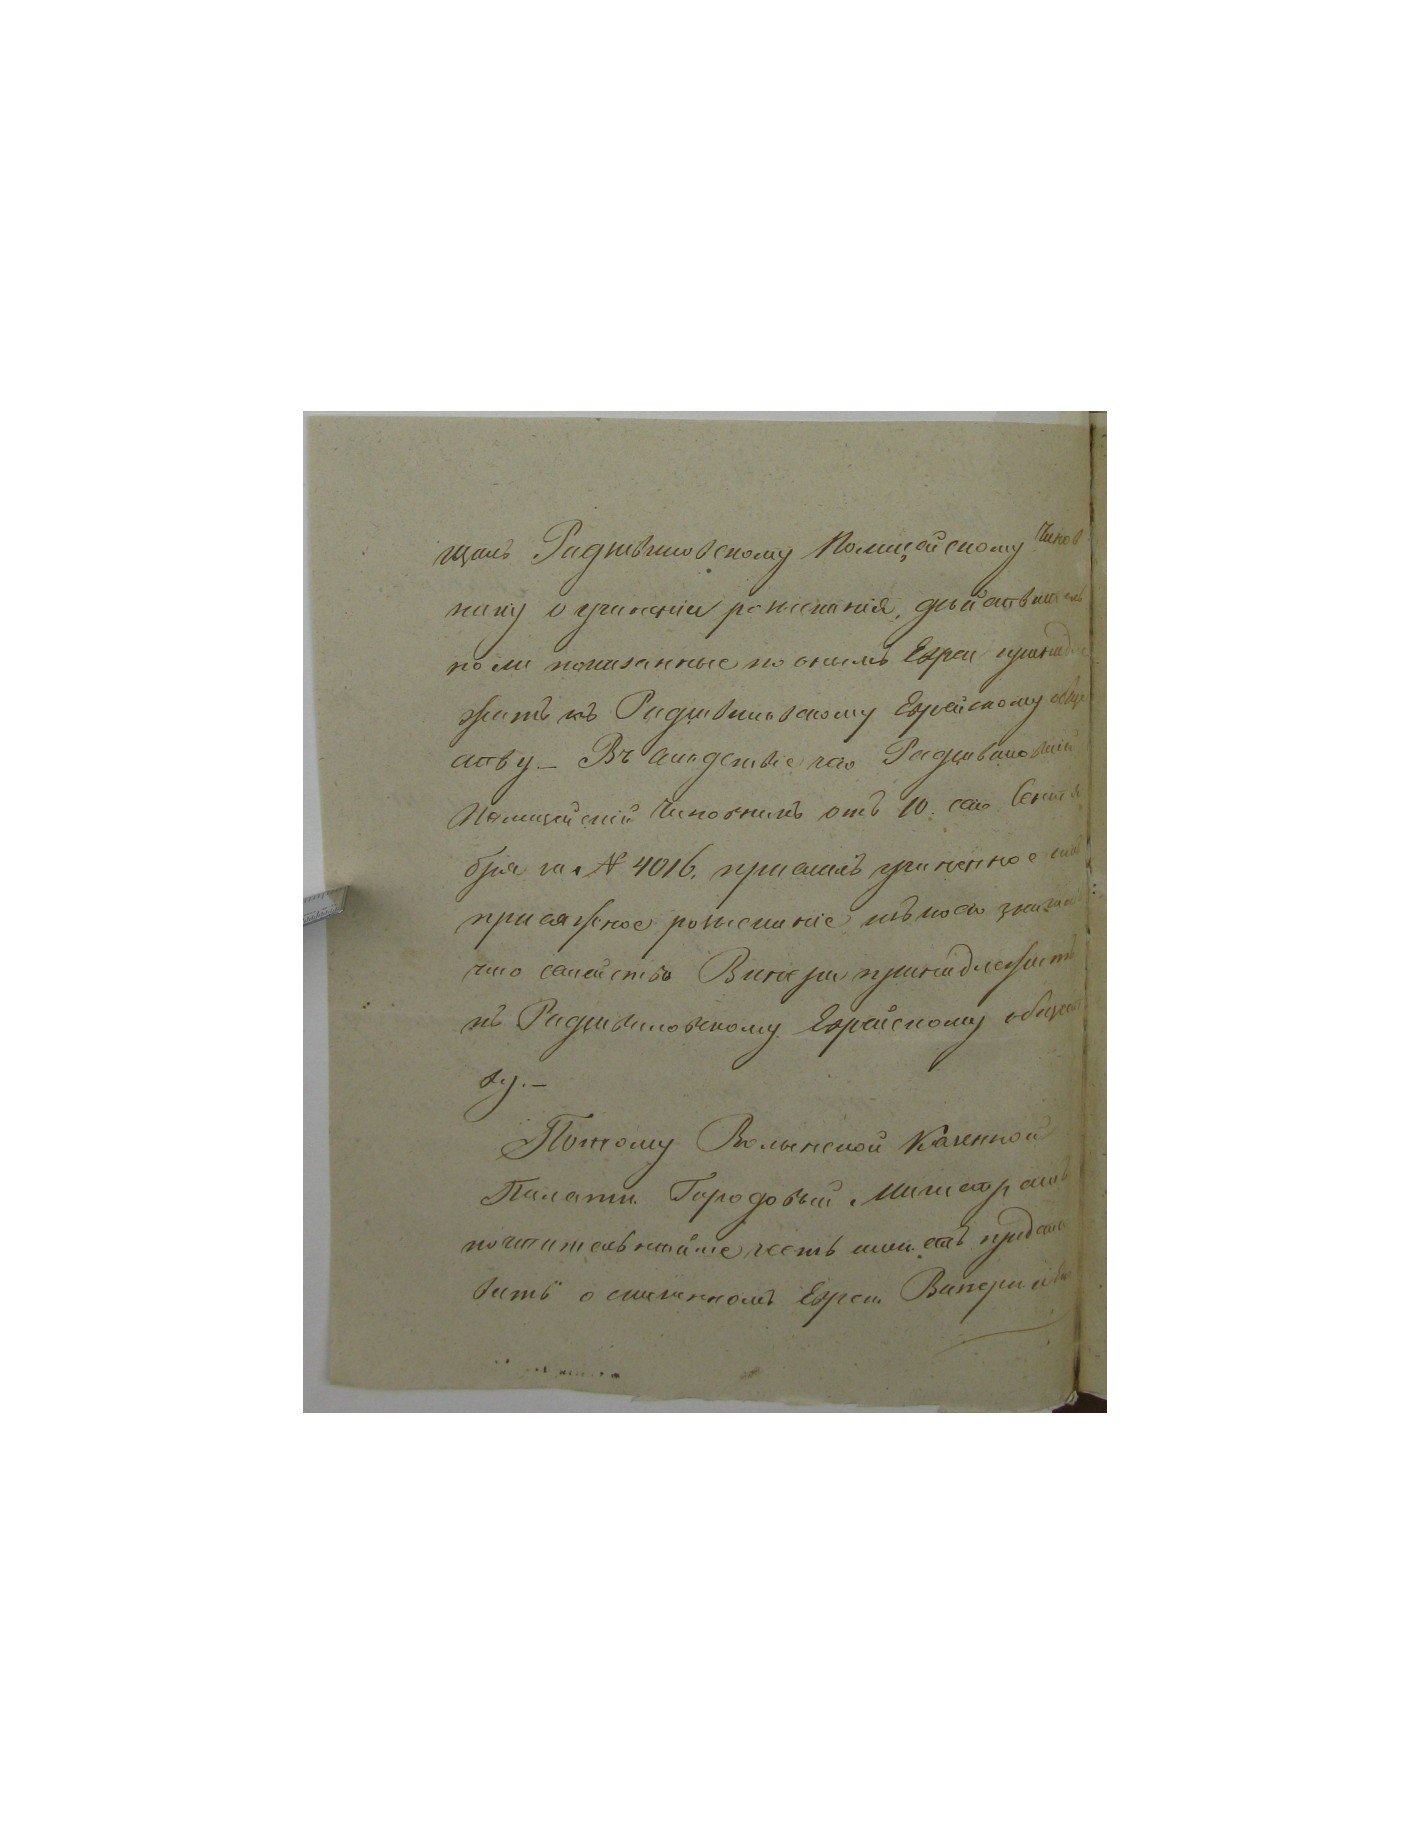 щалъ Радзивиловскому Полицейскому Чинов
нику о учиненіи розысканія, действитель
но ли показанные по онымъ Евреи принадле
жатъ къ Радзивиловскому Еврейскому обще
ству.— Въ следствіе чего Радзивиловскій
Полицейскій Чиновникъ отъ 10. сего Сентя
бря за № 4016. прислалъ учиненное
присяжное розысканіе изъ коего
что семейство Винеры принадлежитъ
къ Радзивиловскому Еврейскому общест
ву.—
Потому Волынской Казенной
Палате Городовый Магистратъ
почтительнейше честь имеетъ предста
вить о Еврее Винеры